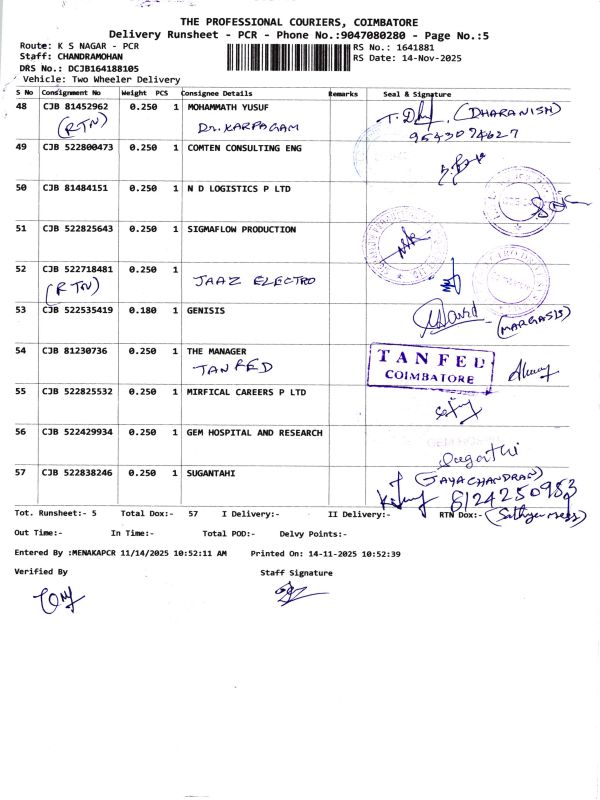 THE PROFESSIONAL COURIERS, COIMBATORE
Delivery Runsheet - PCR - Phone No.:9047080280 - Page No.:5
Route: K S NAGAR - PCR RS No.: 1641881
Staff: CHANDRAMOHAN RS Date: 14-Nov-2025
DRS No.: DCJB164188105
Vehicle: Two Wheeler Delivery
S No Consignment No Weight PCS Consignee Details Remarks Seal & Signature
48 CJB 81452962 0.250 1 MOHAMMATH YUSUF (DHARANISH)
(RTN) Dr. KARPAGAM 9543074627
49 CJB 522800473 0.250 1 COMTEN CONSULTING ENG
50 CJB 81484151 0.250 1 N D LOGISTICS P LTD
51 CJB 522825643 0.250 1 SIGMAFLOW PRODUCTION
52 CJB 522718481 0.250 1
(RTN) JAAZ ELECTRO
53 CJB 522535419 0.180 1 GENISIS
54 CJB 81230736 0.250 1 THE MANAGER TANFED
TANFED COIMBATORE
55 CJB 522825532 0.250 1 MIRFICAL CAREERS P LTD
56 CJB 522429934 0.250 1 GEM HOSPITAL AND RESEARCH
57 CJB 522838246 0.250 1 SUGANTAHI (JAYACHANDRAN)
8124250983
Tot. Runsheet:- 5 Total Dox:- 57 I Delivery:- II Delivery:- RTN Dox:-
Out Time:- In Time:- Total POD:- Delvy Points:-
Entered By :MENAKAPCR 11/14/2025 10:52:11 AM Printed On: 14-11-2025 10:52:39
Verified By Staff Signature